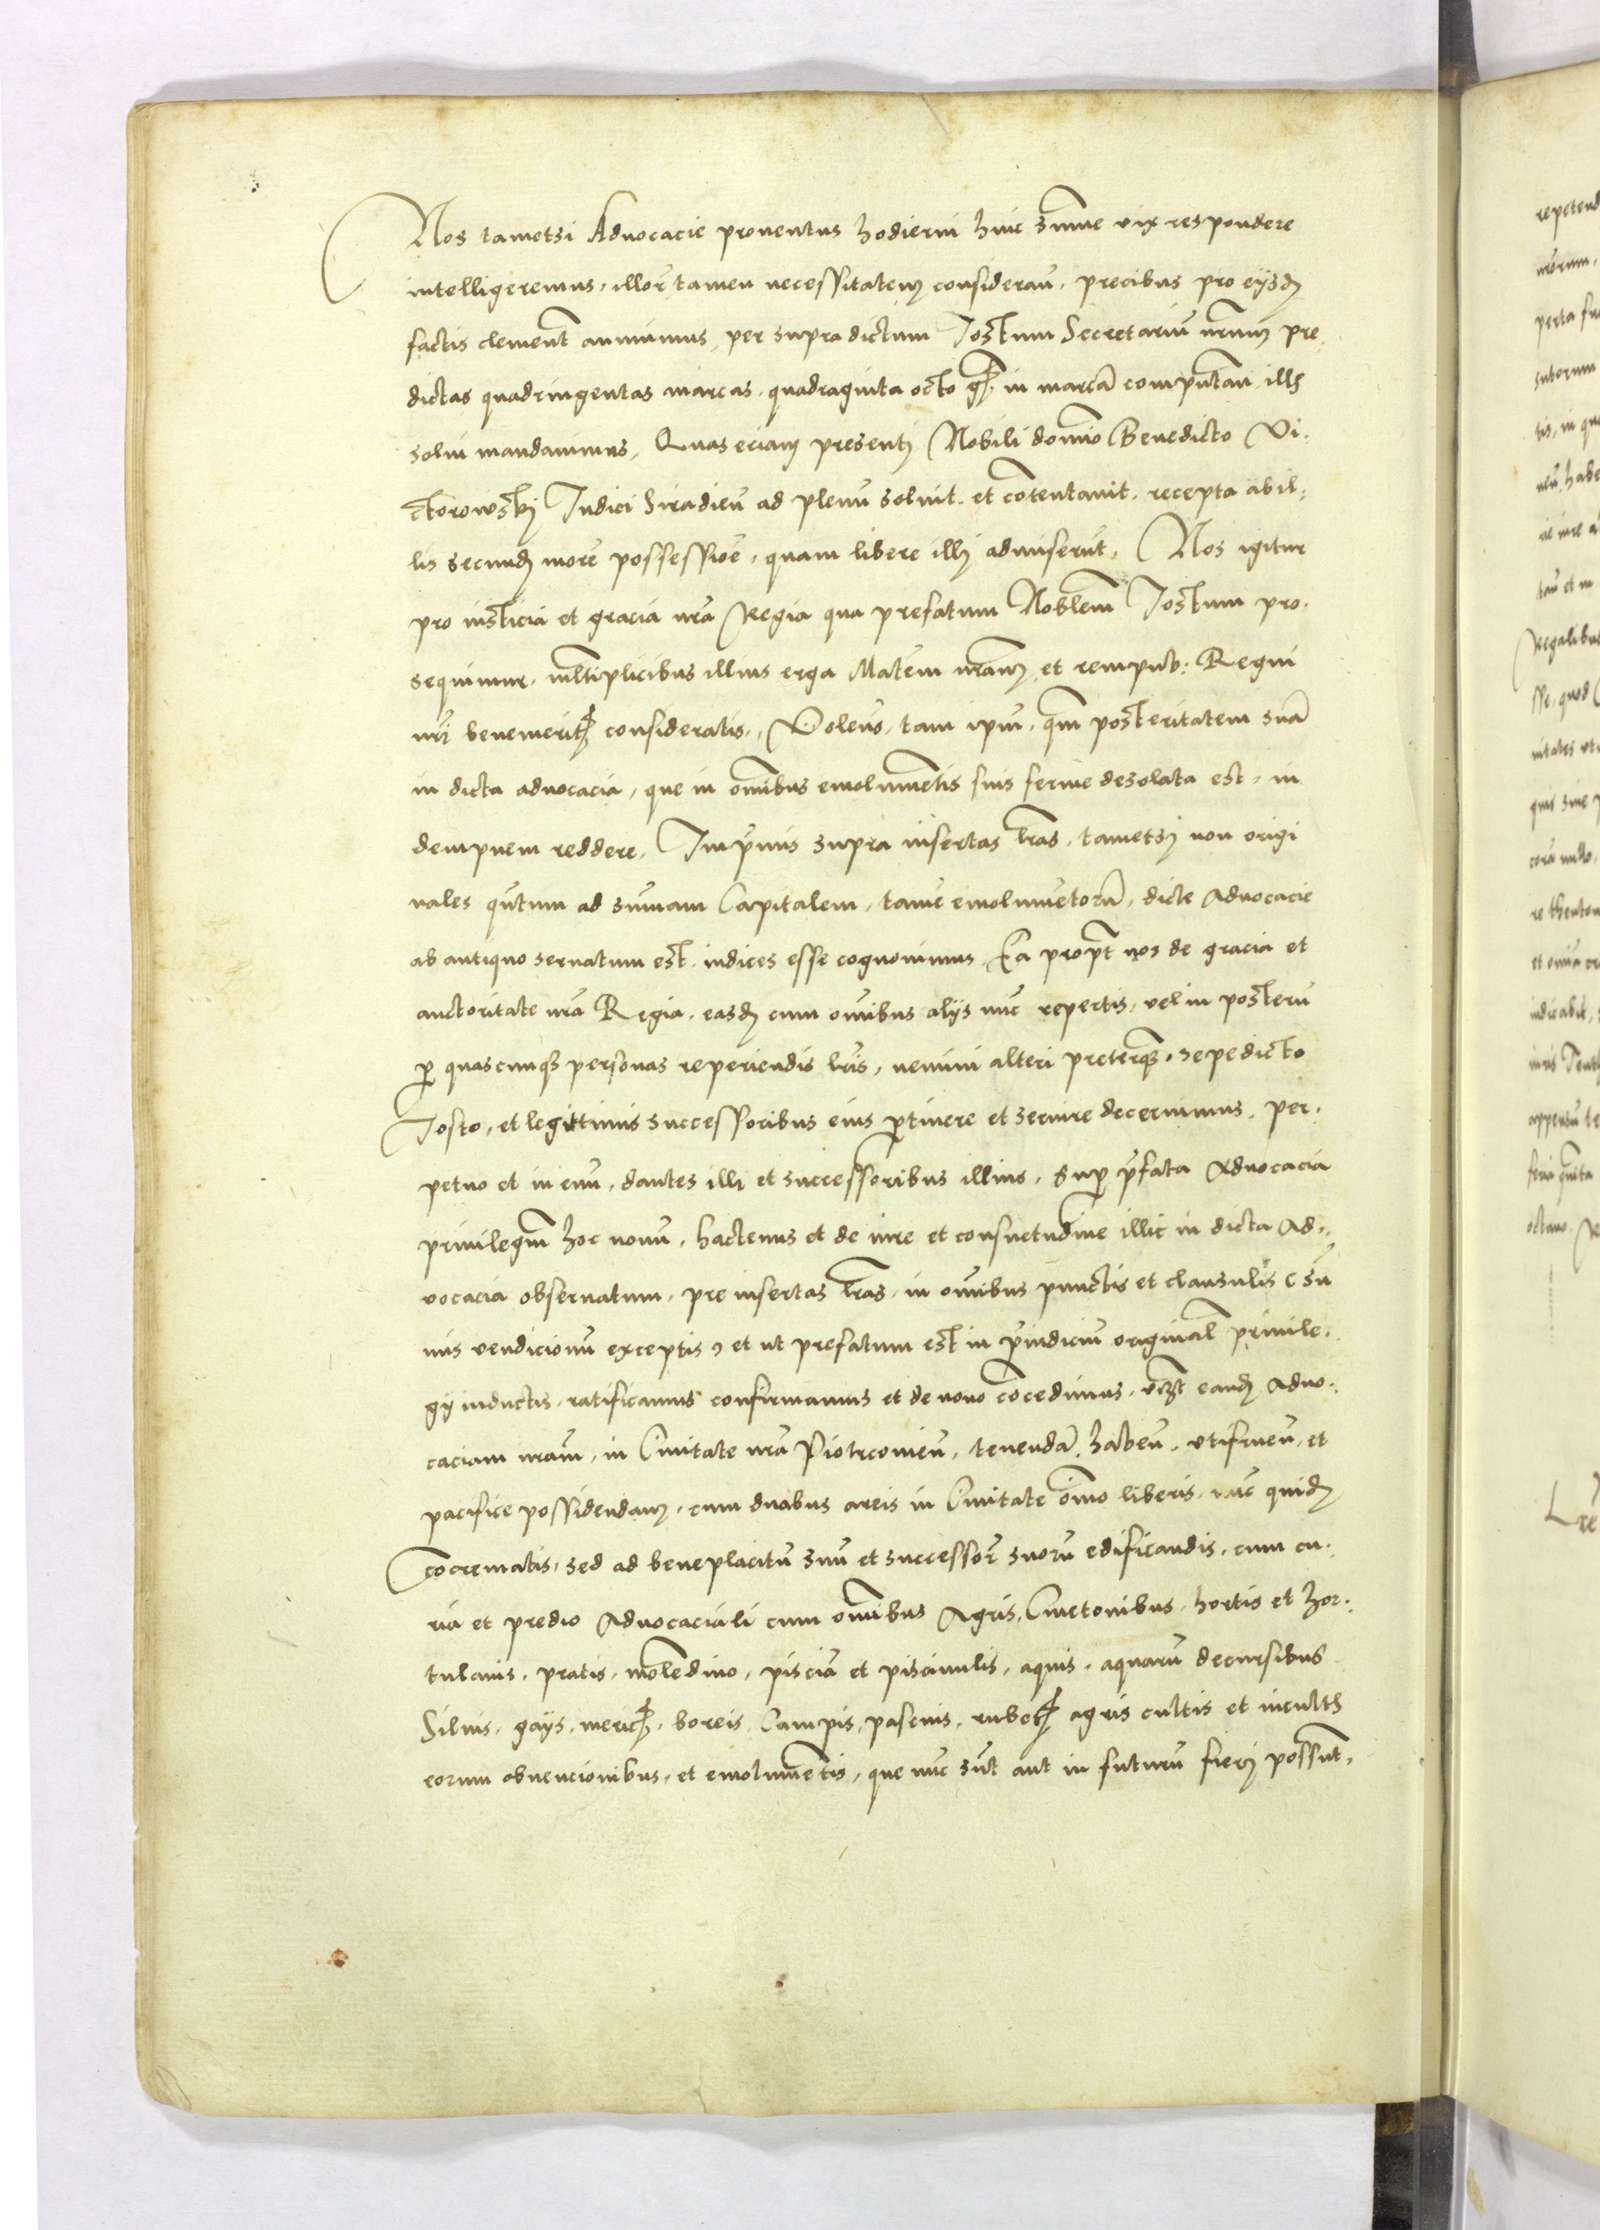 Nos tametsi Advocacie proventus hodierni huic sum̄e vix respondere
intelligeremus, illor̄ tamen necessitatem consideran̄, precibus pro eijsdẽ
factis clement̄ annuimus, per supradictum Jostum Secretariũ nr̄um pre
dictas quadringentas marcas, quadraginta octo gr̄, in marcã computan̄, illis
solui mandauimus, Quas eciam presenti Nobili domĩo Benedicto Vi,
ctorowskj Judici Siradieñ ad plenũ soluit, et cõtentauit, recepta ab il,
lis secundũ morẽ possessiõe, quam libere illj admiserũt, Nos igitur
pro iusticia et gracia nr̄a Regia qua prefatum Nobilem Jostum pro,
sequimur, multiplicibus illius erga Mat̄em nr̄am, et rempub: Regni
nr̄i benemerit̄ consideratis, Volen̄s, tam ip̄m, q̄m posteritatem suã
in dicta advocacia, que in om̄ibus emolumẽtis suis ferme desolata est, in
dempnem reddere, Imp̄mis supra insertas lr̄as, tametsi non origi
nales q̄ntum ad sum̄am Capitalem, tam̄e emolumẽtorũ, dicte Advocacie
ab antiquo seruatum est, indices esse cognouimus, Ea propt̄ nos de gracia et
auctoritate nr̄a Regia, easdẽ cum om̄ibus alijs nũc repertis, vel in posterũ
p̱ quascunq̃ personas reperiendis lr̄is, nemini alteri preterq̃, sepedicto
Josto, et legittimis successoribus eius p̱tinere et seruire decernimus, per,
petuo et in euũ, dantes illi et successoribus illius, sup̱ p̄fata Advocacia
priuilegiũ hoc nouũ, hactenus et de iure et consuetudine illic in dicta Ad,
vocacia obseruatum, pre insertas lr̄as, in om̄ibus punctis et clausulis (sum̄
mis vendicionũ exceptis) et ut prefatum est in p̄iudiciũ original̄ priuile,
gij inductis, ratificamus confirmamus et de nouo cõcedimus, vt̄z eandẽ Advo,
caciam nr̄am, in Ciuitate nr̄a Piotrcouieñ, tenendã, habeñ, vtifrueñ, et
pacifice possidendam, cum duabus areis in Ciuitate om̄o liberis, nũc quidẽ
cõcrematis, sed ad beneplacitũ suũ et successor̄ suorũ edificandis, cum cu,
ria et predio Advocaciali cum om̄ibus Agris, Cmetonibus, hortis et hor,
tulanis, pratis, molendino, piscina et piscinulis, aquis, aquarũ decursibus
Siluis, gays, meric̄, boreis, Campis, pascuis, rubet̄, agris cultis et incultis
eorum obuencionibus, et emolumẽtis, que nũc sũt aut in futurũ fierj possũt,